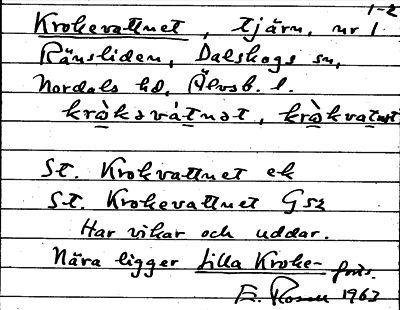 1-2
Krokevattnet, tjärn, nr 1
Ränsliden, Dalskogs sn,
Nordals hd, Älvsb. l.
krò̲kəvátnət, krò̲kvatnət
St. Krokvattnet ek
St. Krokevattnet Gsz
Har vikar och uddar.
Nära ligger Lilla Kroke-
1963